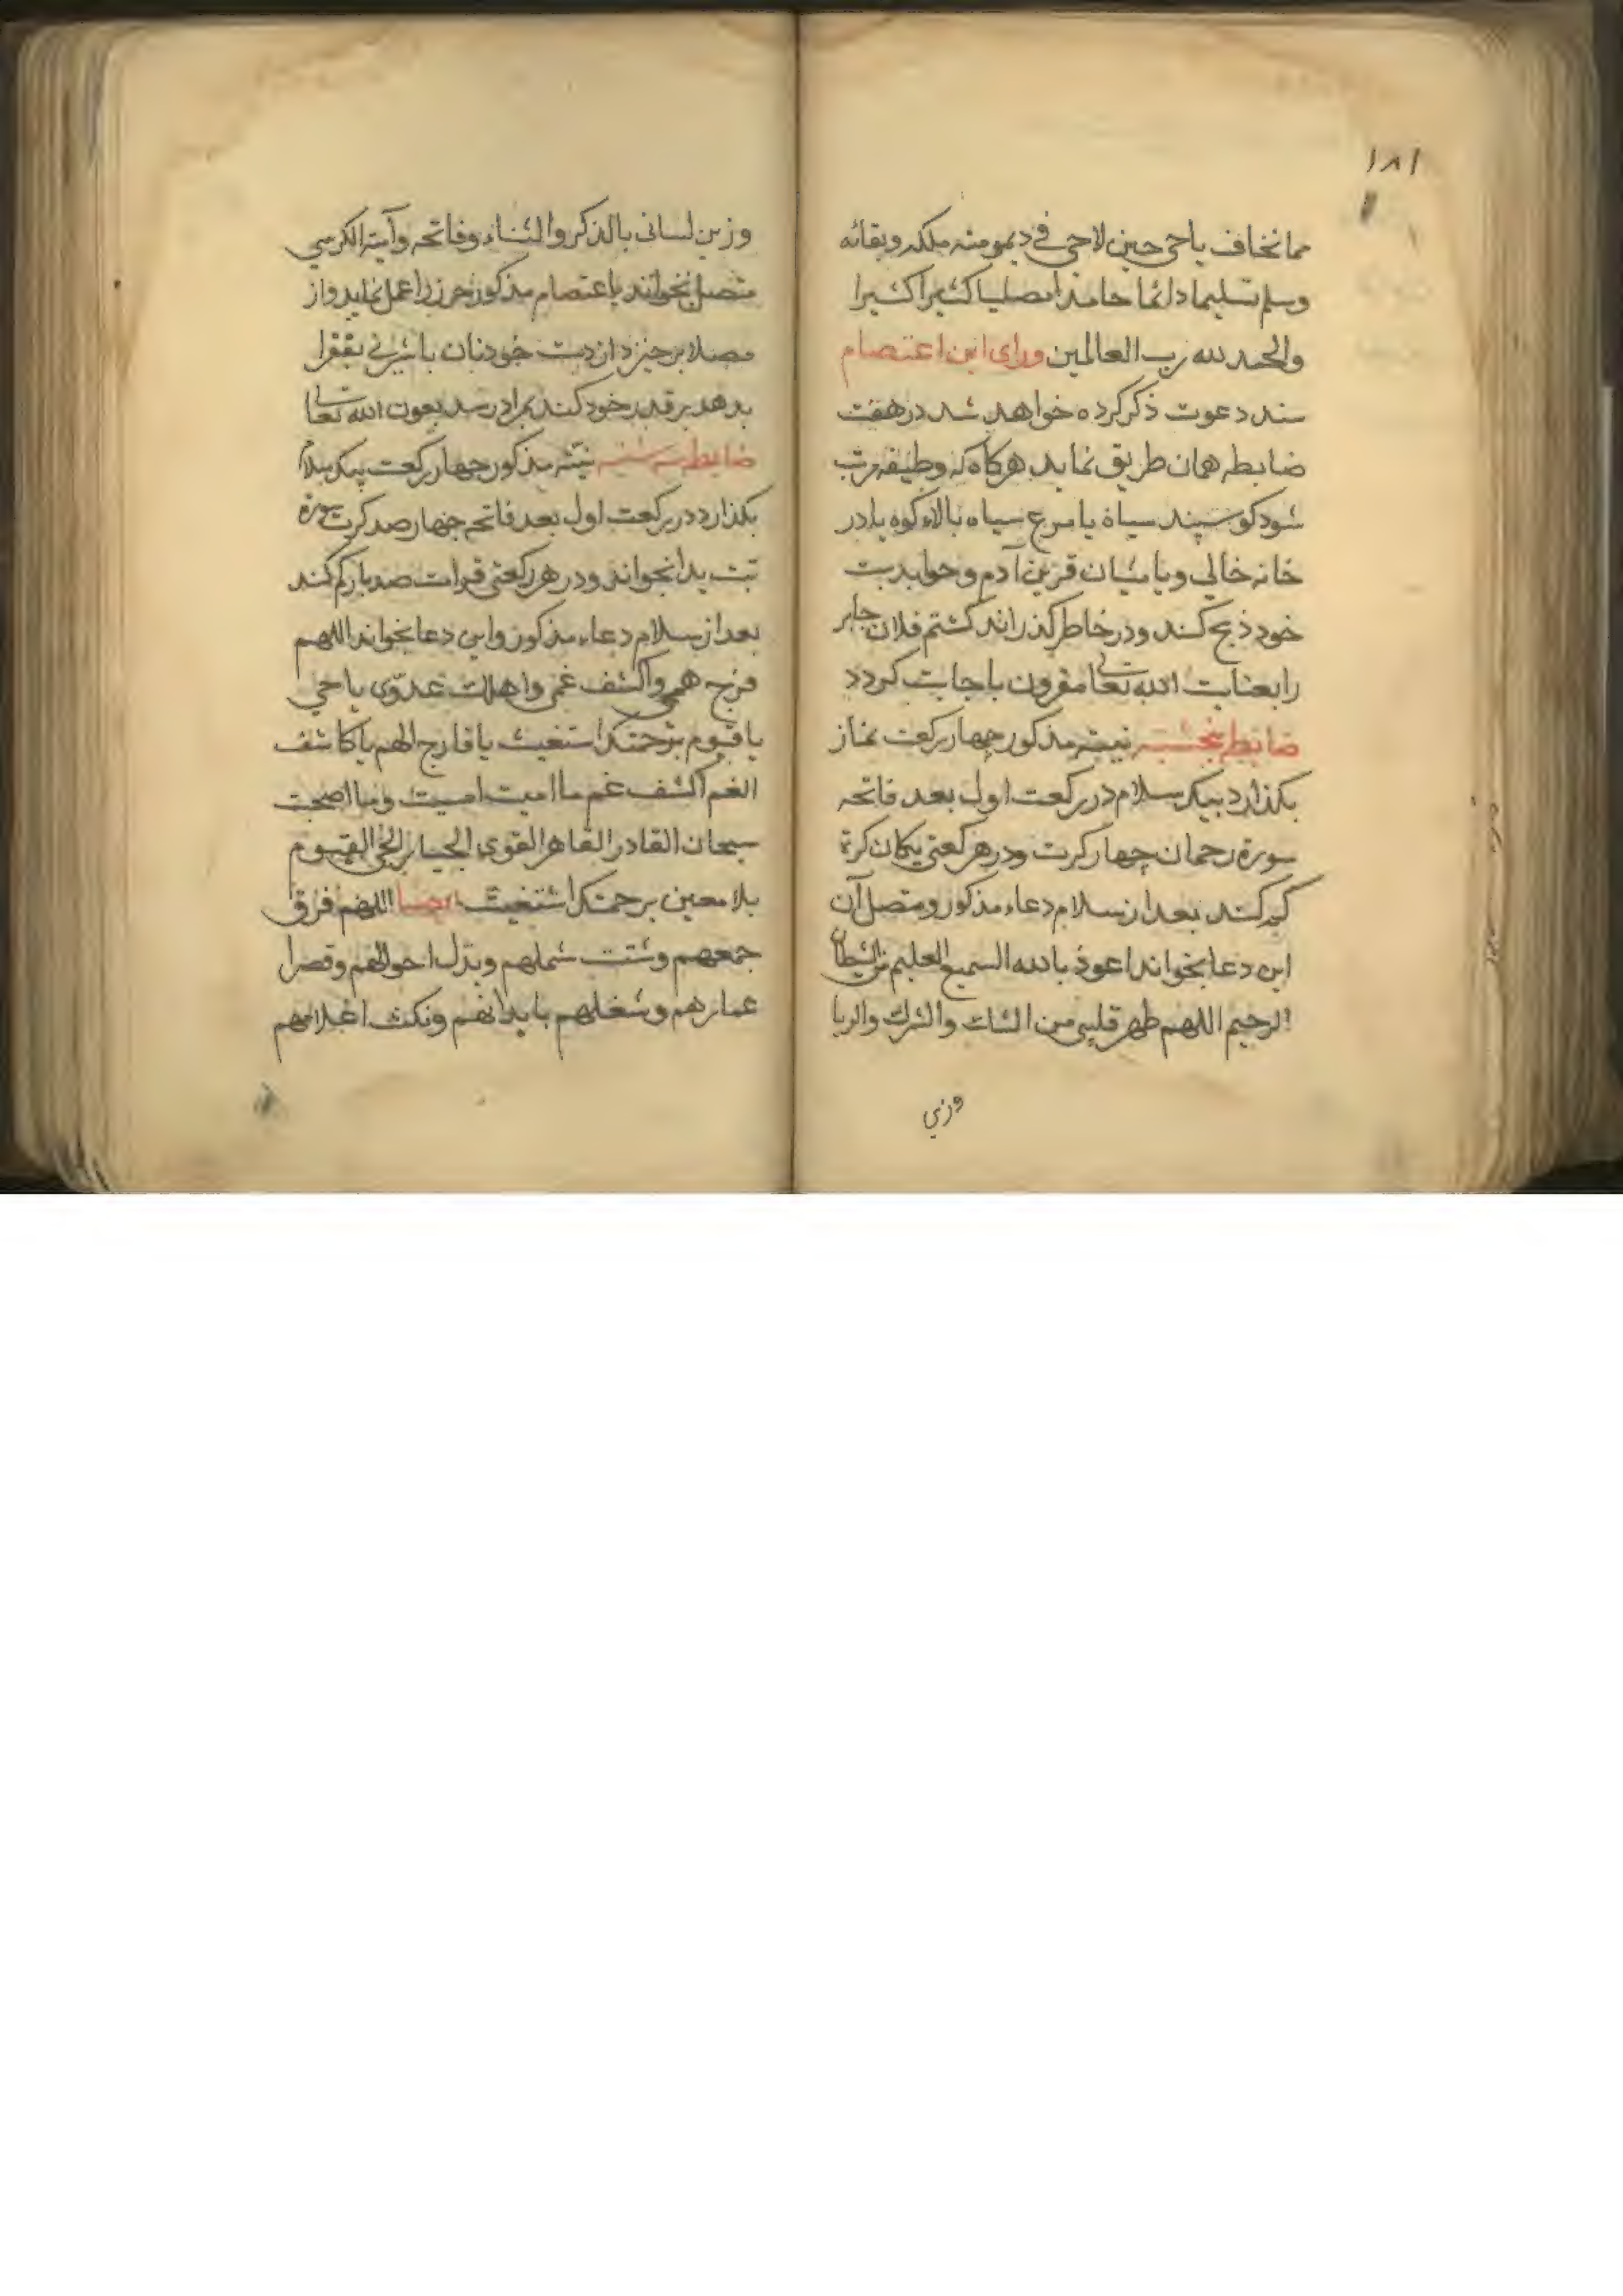 ۱۸۱
مما نخاف یا حی حین لا حی فی دیمومته ملکه وبقائه
وسلم تسلیما دائما حامدا مصلیا کثیرا کثیرا
والحمد لله رب العالمین ورای این اعتصام
سند دعوت ذکر کرده خواهد شد در هفت
ضابطه همان طریق نماید هرکاه که وظیفه مرتب
شود کوسپند سیاه یا مرغ سیاه بالاء کوه یا در
خانه خالی ویا میان قرین آدم وحوا بدست
خود ذبح کند ودر خاطر کذراند کشتم فلان جابر
را بعنایت الله تعالی مقرون باجابت کردد
ضابطه پنجشنبه نیته مذکور چهار رکعت نماز
بکذارد بیک سلام در رکعت اول بعد فاتحه
سوره رحمان چهار کرت ودر هر رکعتی یکان کرة
کم کند بعد از سلام دعاء مذکور ومتصل آن
این دعا بخواند اعوذ بالله السمیع العلیم من الشیطان
الرجیم اللهم طهر قلبی من الشک والشرک والریا
وزین
وزین لسانی بالذکر والثناء وفاتحه وآیة الکرسی
متصل بخواند با اعتصام مذکور حرز را عمل نماید واز
مصلا برخیزد از دست خود نان با شیرنی بفقرا
بدهد بر قدر خود کند بمراد رسد بعون الله تعالی
ضابطه سه شنبه نیته مذکور چهار رکعت بیک سلام
بکذارد در رکعت اول بعد فاتحه چهار صد کرت سورة
تبت یدا بخواند ودر هر رکعتی قرات صد بار کم کند
بعد از سلام دعاء مذکور واین دعا بخواند اللهم
فرج همی واکشف غمی واهلک عدوی یا حی
یا قیوم برحمتک استغیث یا فارج الهم یا کاشف
الغم اکشف غم ما امیت امسیت وما اصبحت
سبحان القادر القاهر القوی الجبار الحی القیوم
بلا معین برحمتک استغیث اللهم فرق
جمعهم وشتت شملهم وبدل احوالهم وقصر ا
عمارهم وشغلهم بابدانهم ونکث اعلامهم